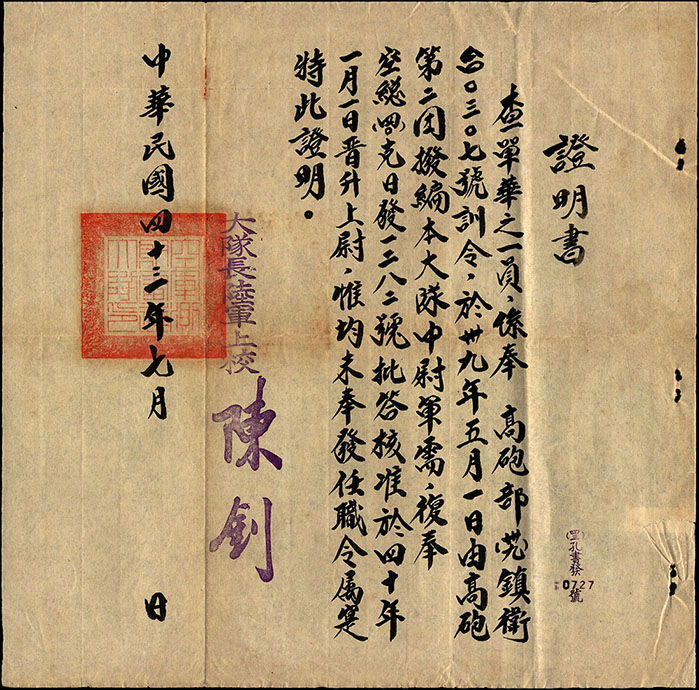 證明書
查單華之一員，係奉　高砲部鎮衛
〇三〇七號訓令，於卅九年五月一日由高砲
第二团撥編本大隊中尉軍需，復奉
空總日發一三八二號批答核准於四十年
一月一日晉升上尉，惟均未奉發任職令属寔
特此證明。
大隊長陸軍上校 陳釗
中華民國四十三年七月　日
孔書發
0727號